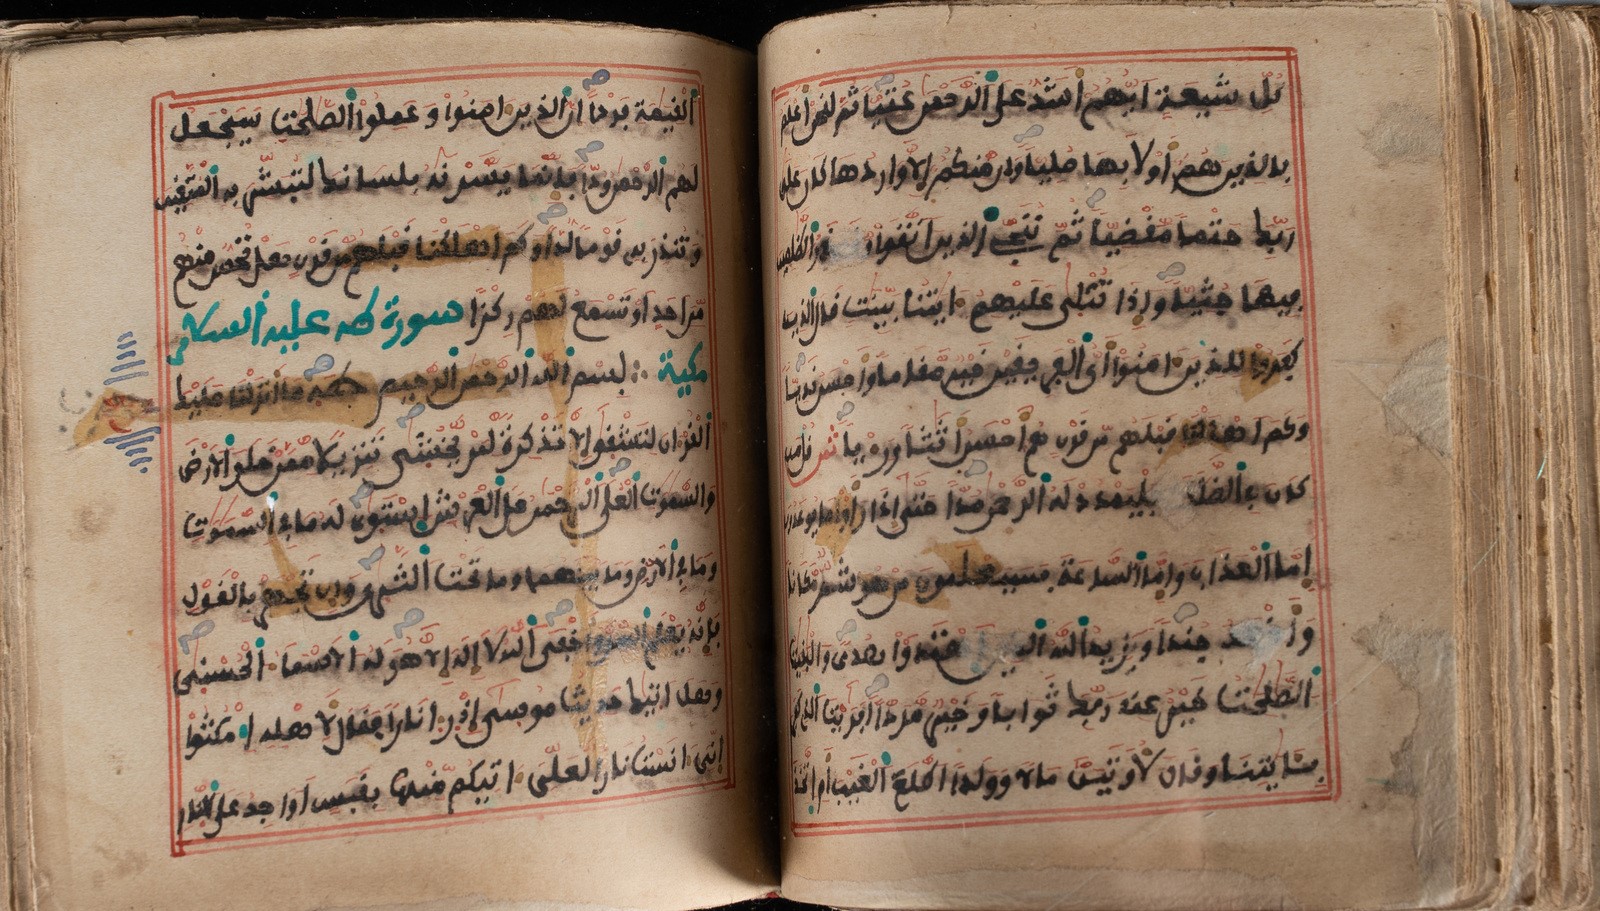 كل شيعة ايهم اشد على الرحمن عتيا ثم لنحن اعلم
بالذين هم اولى بها صليا وان منكم الا واردها كان على
ربك حتما مقضيا ثم ننجي الذين اتقوا الظلمين
فيها جثيا واذا تتلى عليهم ءايتنا بينت قال الذين
كفروا للذين ءامنوا اي الفريقين خير مقاما واحسن نديا
وكم اهلكنا قبلهم من قرن هم احسن اثثا ورءيا قل من
كان في الضللة فليمدد له الرحمن مدا حتى اذا راوا ما يوعدون
اما العذاب واما الساعة فسيعلمون من هو شر مكانا
جندا ويزيد الله اهتدوا هدى والبقيت
الصلحت خير عند ربك ثوابا وخير مردا افريت الذي كفر
بايتنا وقال لاوتين مالا وولدا اطلع الغيب ام اتخذ
القيمة فردا ان الذين ءامنوا وعملوا الصلحت سيجعل
لهم الرحمن ودا فانما يسرنه بلسانك لتبشر به المتقين
وتنذر به قوما لدا وكم اهلكنا قبلهم من قرن هل تحس منهم
من احد او تسمع لهم ركزا سورة طه عليه السلام
مكية بسم الله الرحمن الرحيم طه ما انزلنا عليك
القرءان لتشقى الا تذكرة لمن يخشى تنزيلا ممن خلق الارض
والسموت العلى الرحمن على العرش استوى له ما في السموت
وما في الارض وما بينهما وما تحت الثرى وان تجهر بالقول
فانه يعلم السر واخفى الله لا اله الا هو له الاسماء الحسنى
وهل اتيك حديث موسى اذ رءا نارا فقال لاهله امكثوا
اني ءانست نارا لعلي ءاتيكم منها بقبس او اجد على النار